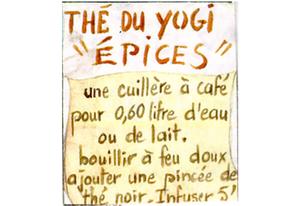 THÉ DU YOGI
"ÉPICES"
une cuillère à café
pour 0,60 litre d'eau
ou de lait.
bouillir à feu doux
ajouter une pincée de
thé noir. Infuser 5'